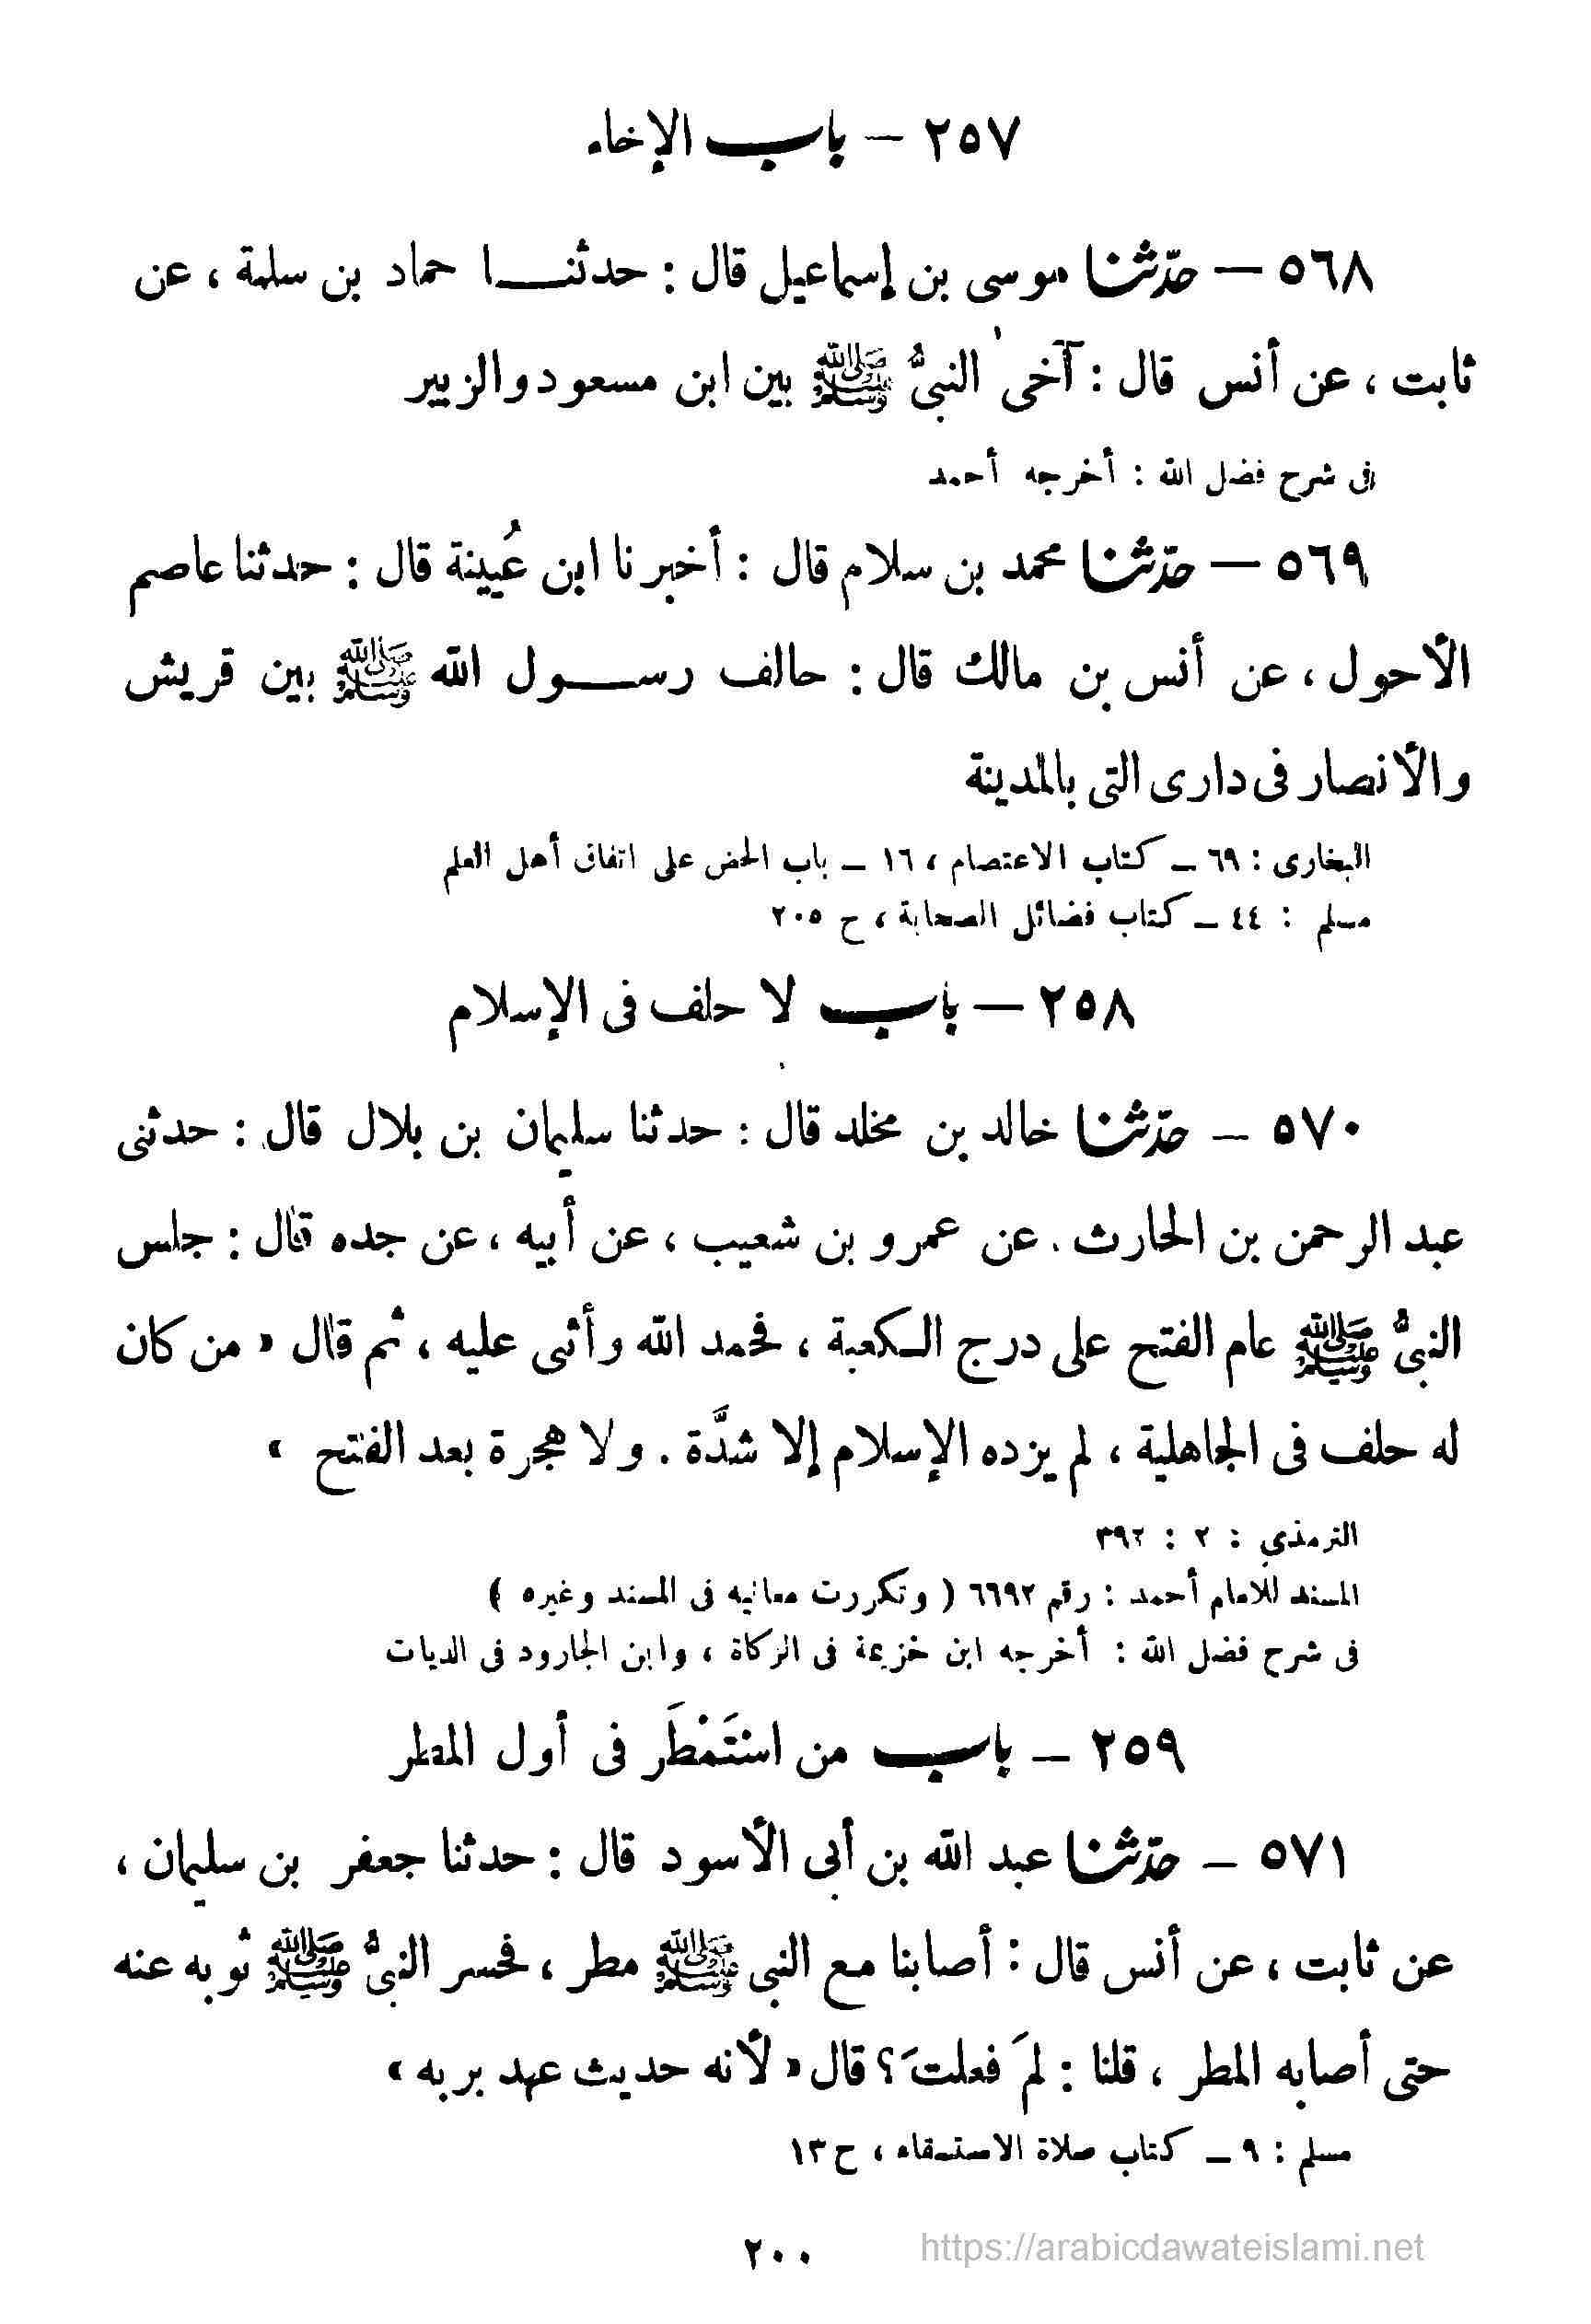 ٢٥٧ – باب الإخاء
٥٦٨ – حدّثنا موسى بن إسماعيل قال : حدثنا حماد بن سلمة ، عن
ثابت ، عن أنس قال : آخى النبىُّ ﷺ بين ابن مسعود والزبير
فى شرح فضل الله : أخرجه أحمد
٥٦٩ – حدّثنا محمد بن سلام قال : أخبرنا ابن عُيينة قال : حدثنا عاصم
الأحول ، عن أنس بن مالك قال : حالف رسول الله ﷺ بين قريش
والأنصار فى دارى التى بالمدينة
البخارى : ٦٩ – كتاب الاعتصام ، ١٦ – باب الحض على اتفاق أهل العلم
مسلم : ٤٤ – كتاب فضائل الصحابة ، ح ٢٠٥
٢٥٨ – باب لا حلف فى الإسلام
٥٧٠ – حدّثنا خالد بن مخلد قال : حدثنا سليمان بن بلال قال : حدثنى
عبد الرحمن بن الحارث . عن عمرو بن شعيب ، عن أبيه ، عن جده قال : جلس
النبىُّ ﷺ عام الفتح على درج الكعبة ، فحمد الله وأثنى عليه ، ثم قال « من كان
له حلف فى الجاهلية ، لم يزده الإسلام إلا شدَّة . ولا هجرة بعد الفتح »
الترمذي : ٢ : ٣٩٢
المسند للامام أحمد : رقم ٦٦٩٢ ( وتكررت معانيه فى المسند وغيره )
فى شرح فضل الله : أخرجه ابن خزيمة فى الزكاة ، وابن الجارود فى الديات
٢٥٩ – باب من استَمْطَر فى أول المطر
٥٧١ – حدّثنا عبد الله بن أبى الأسود قال : حدثنا جعفر بن سليمان ،
عن ثابت ، عن أنس قال : أصابنا مع النبى ﷺ مطر ، فحسر النبىُّ ﷺ ثوبه عنه
حتى أصابه المطر ، قلنا : لمَ فعلتَ ؟ قال « لأنه حديث عهد بربه »
مسلم : ٩ – كتاب صلاة الاستسقاء ، ح ١٣
٢٠٠
https://arabicdawateislami.net